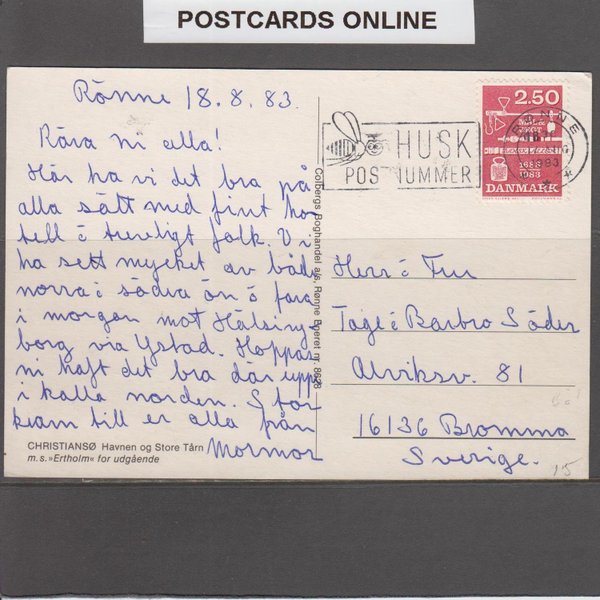 POSTCARDS ONLINE
Rönne 18.8.83.
Kära ni alla!
Här ha vi det bra på
alla sätt med fint ho-
tell o trevligt folk. Vi
ha sett mycket av både
norra o södra ön o fara
i morgon mot Hälsing-
borg via Ystad. Hoppas
ni haft det bra där uppe
i kalla norden. Stor
kram till er alla från
Mormor
CHRISTIANSØ Havnen og Store Tårn
m.s. »Ertholm« for udgående
Colbergs Boghandel a/s, Rønne Eneret nr. 8628
HUSK
POSTNUMMER
RØNNE
2.50
MÅL &
VÆGT
1683
1983
DANMARK
Herr o Fru
Tage o Barbro Söder
Alviksv. 81
16136 Bromma
Sverige.
15